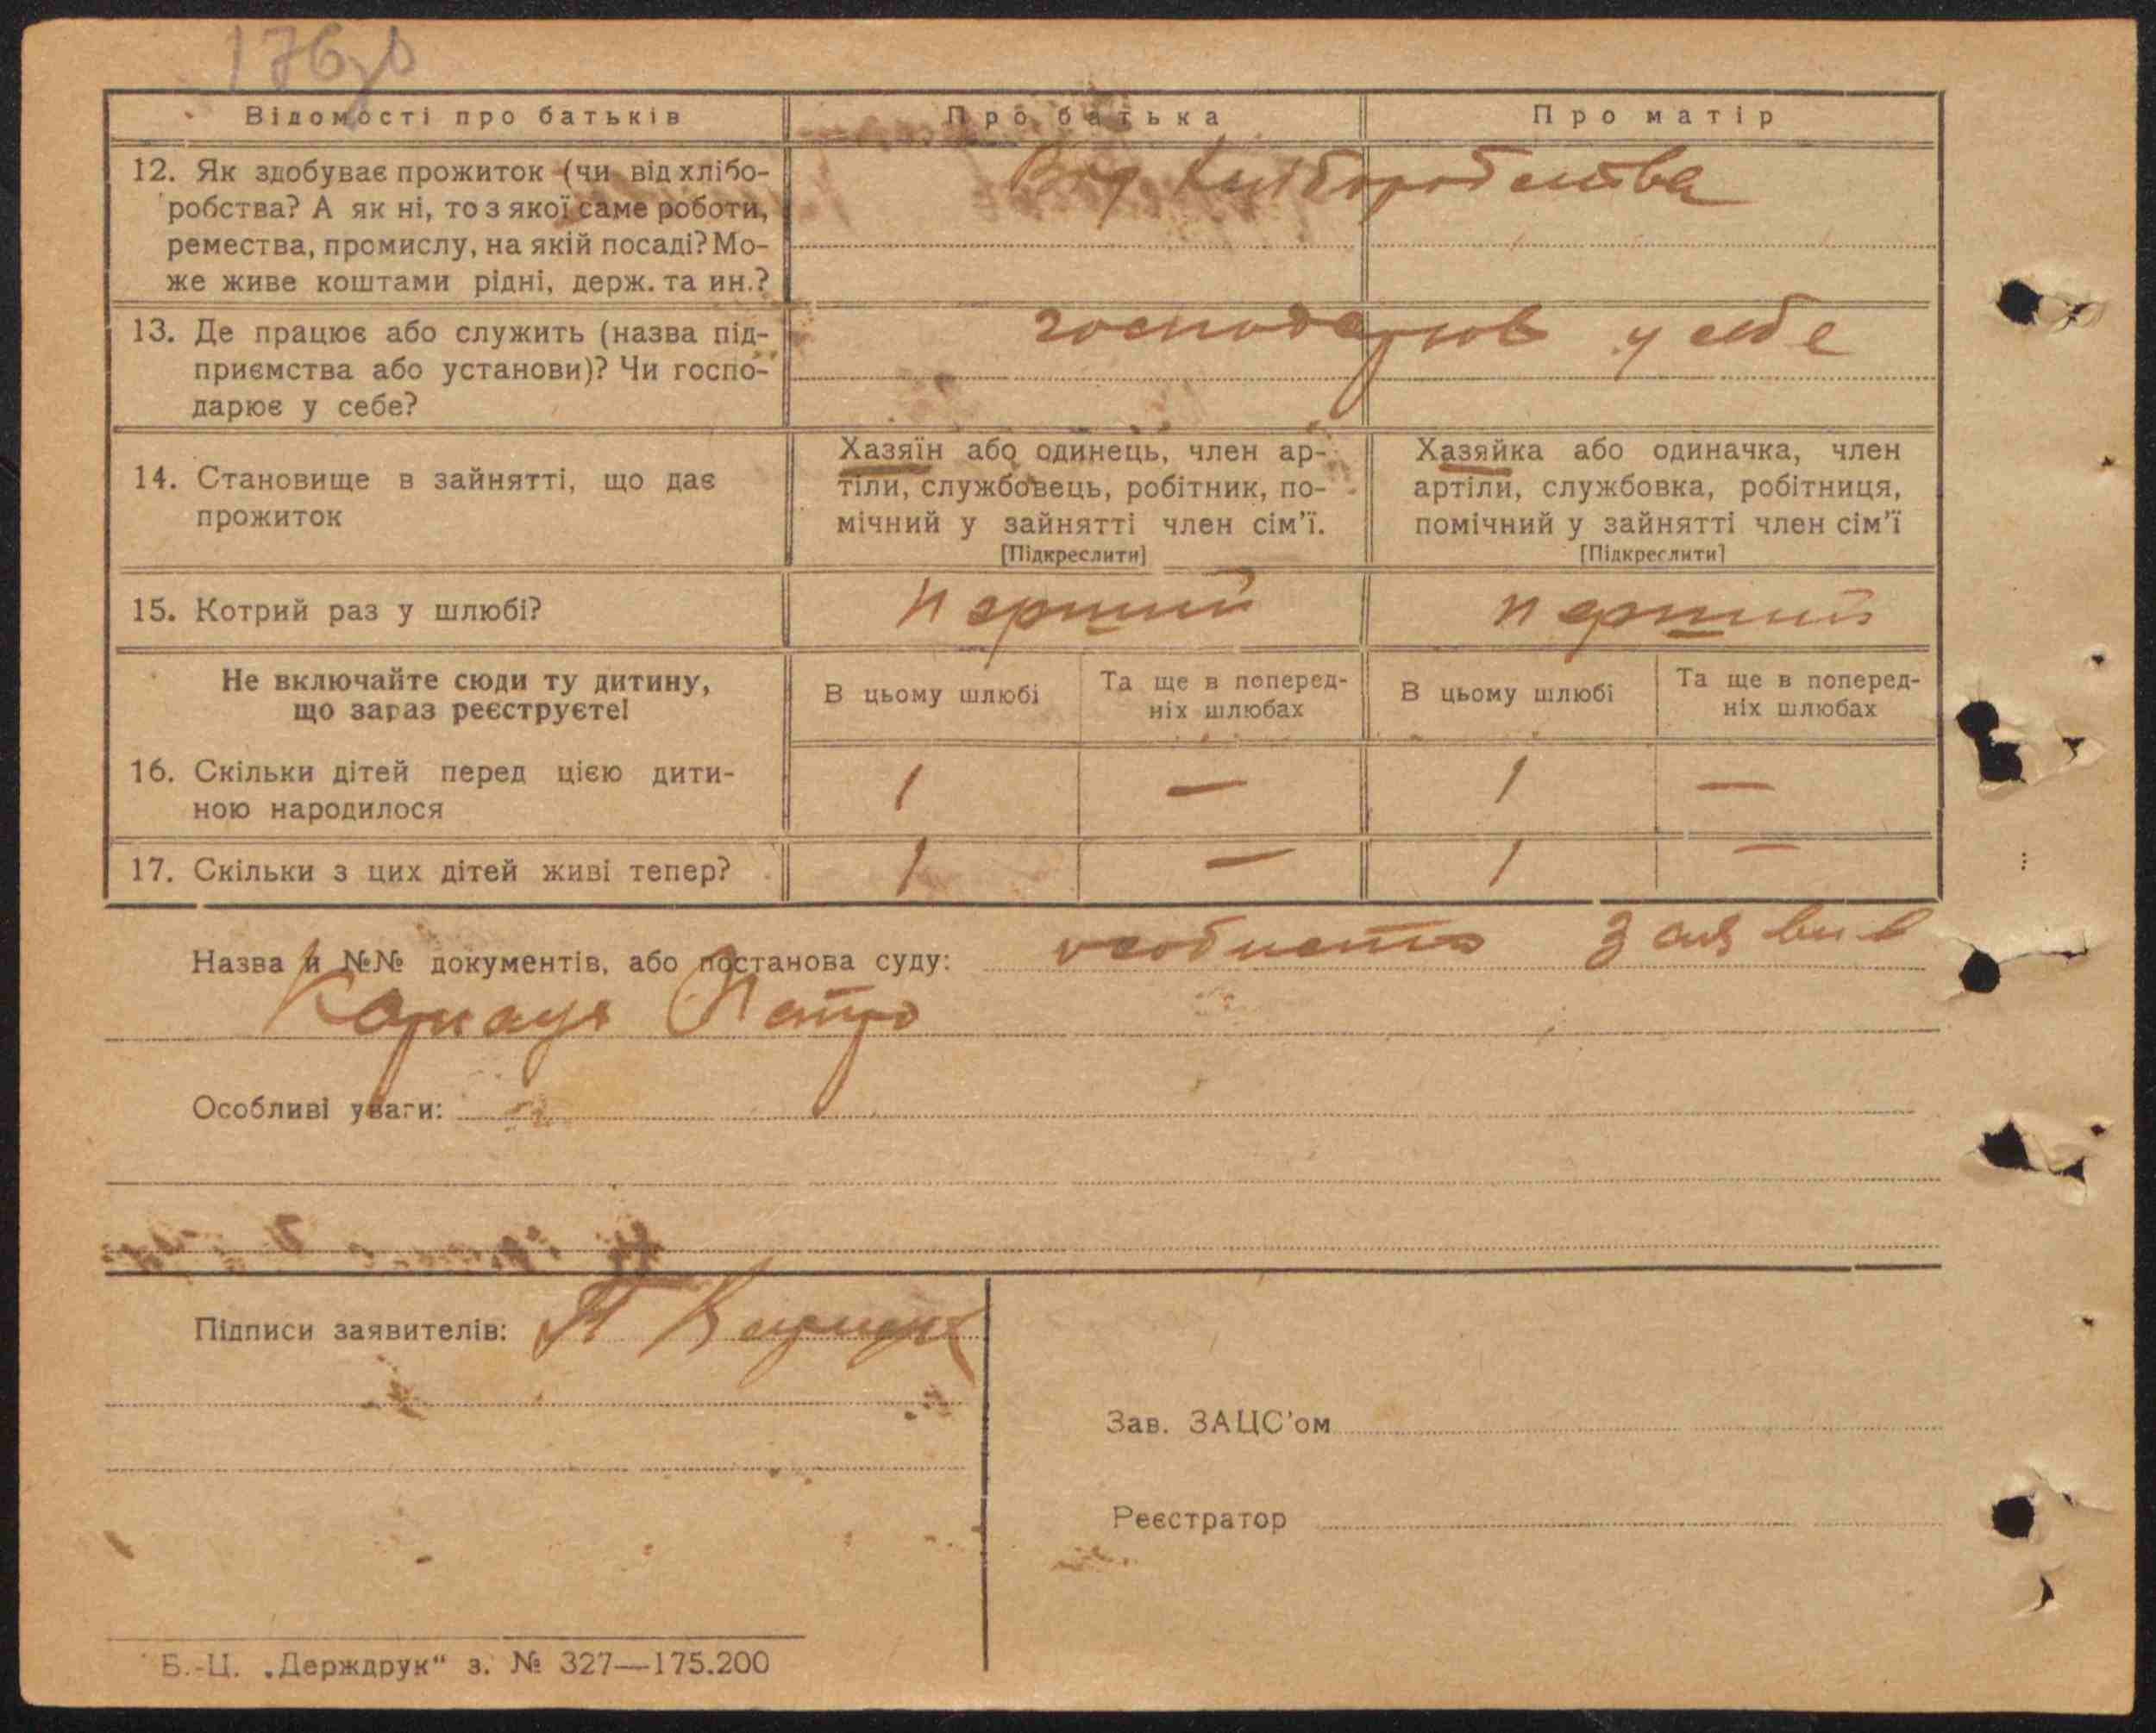 176 зв
Відомості про батьків
Про батька
Про матір
12. Як здобуває прожиток (чи від хлібо-
робства? А як ні, то з якої саме роботи,
ремества, промислу, на якій посаді? Мо-
же живе коштами рідні, держ. та ин.?
Від хліборобства
13. Де працює або служить (назва під-
приємства або установи)? Чи госпо-
дарює у себе?
господарює у себе
14. Становище в зайнятті, що дає
прожиток
Хазяїн або одинець, член ар-
тіли, службовець, робітник, по-
мічний у зайнятті член сім'ї.
[Підкреслити]
Хазяйка або одиначка, член
артіли, службовка, робітниця,
помічний у зайнятті член сім'ї
[Підкреслити]
15. Котрий раз у шлюбі?
перший
перший
Не включайте сюди ту дитину,
що зараз реєструєте!
В цьому шлюбі
Та ще в поперед-
ніх шлюбах
В цьому шлюбі
Та ще в поперед-
ніх шлюбах
16. Скільки дітей перед цією дити-
ною народилося
1 — 1 —
17. Скільки з цих дітей живі тепер?
1 — 1 —
Назва й №№ документів, або постанова суду: особисто заявив
Петро
Особливі уваги:
Підписи заявителів: П
Зав. ЗАЦС'ом
Реєстратор
Б.-Ц. „Держдрук“ з. № 327—175.200